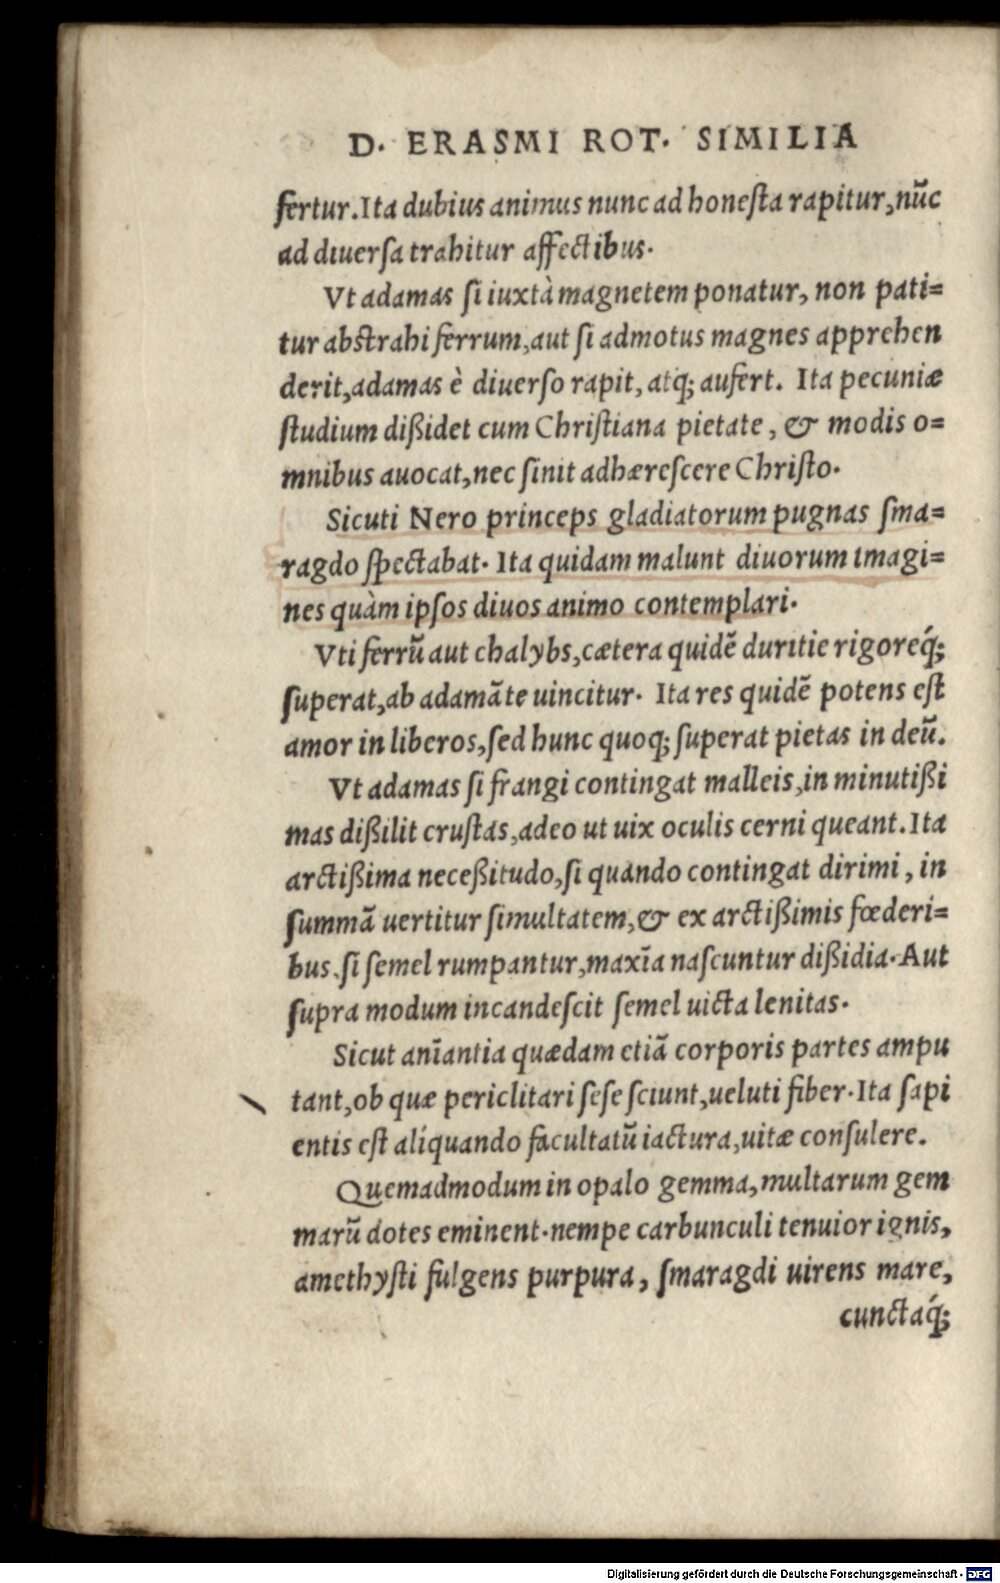 D. ERASMI ROT. SIMILIA
fertur. Ita dubius animus nunc ad honeſta rapitur, nūc
ad diuerſa trahitur affectibus.
Vt adamas ſi iuxtà magnetem ponatur, non pati=
tur abſtrahi ferrum, aut ſi admotus magnes apprehen
derit, adamas è diuerſo rapit, atq; aufert. Ita pecuniæ
ſtudium dißidet cum Chriſtiana pietate, & modis o=
mnibus auocat, nec ſinit adhæreſcere Chriſto.
Sicuti Nero princeps gladiatorum pugnas ſma=
ragdo ſpectabat. Ita quidam malunt diuorum imagi=
nes quàm ipſos diuos animo contemplari.
Vti ferrū aut chalybs, cætera quidē duritie rigoreq́;
ſuperat, ab adamāte uincitur. Ita res quidē potens eſt
amor in liberos, ſed hunc quoq; ſuperat pietas in deū.
Vt adamas ſi frangi contingat malleis, in minutißi
mas dißilit cruſtas, adeo ut uix oculis cerni queant. Ita
arctißima neceßitudo, ſi quando contingat dirimi, in
ſummā uertitur ſimultatem, & ex arctißimis fœderi=
bus, ſi ſemel rumpantur, maxīa naſcuntur dißidia. Aut
ſupra modum incandeſcit ſemel uicta lenitas.
Sicut anīantia quædam etiā corporis partes ampu
tant, ob quæ periclitari ſeſe ſciunt, ueluti fiber. Ita ſapi
entis eſt alíquando facultatū iactura, uitæ conſulere.
Quemadmodum in opalo gemma, multarum gem
marū dotes eminent. nempe carbunculi tenuior ignis,
amethyſti fulgens purpura, ſmaragdi uirens mare,
cunctaq́;
Digitalisierung gefördert durch die Deutsche Forschungsgemeinschaft - DFG